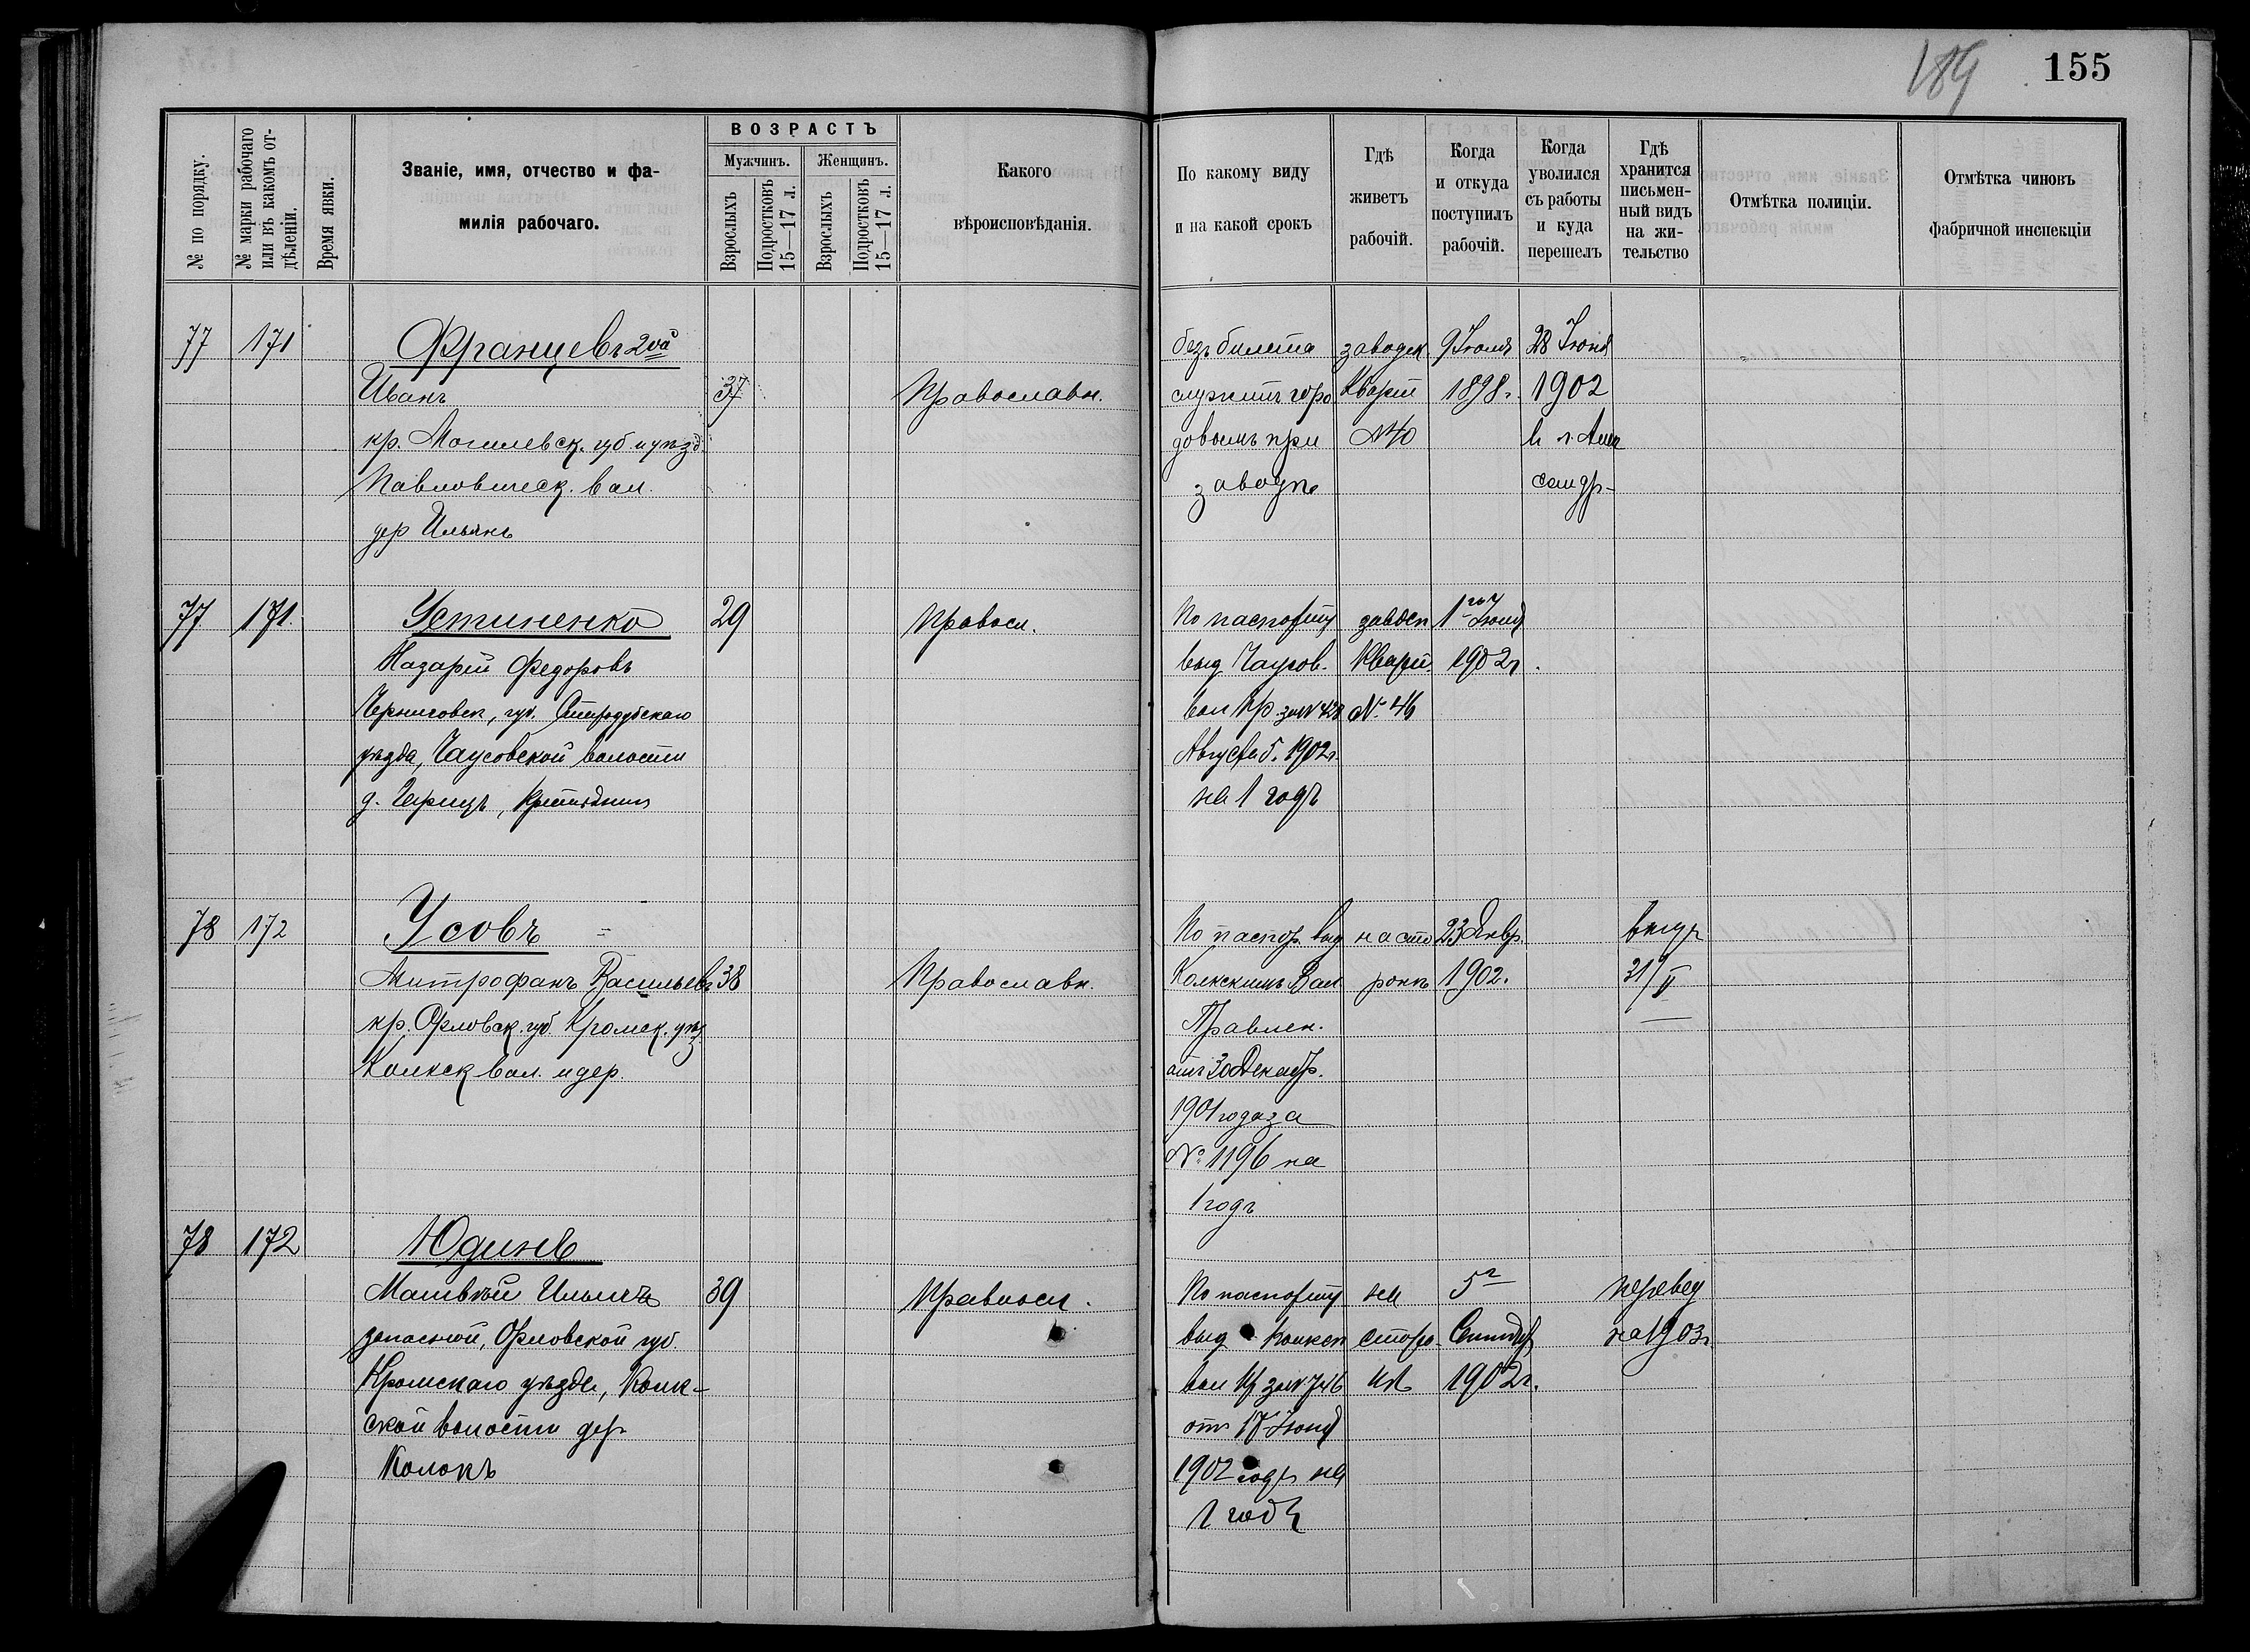 189 155
№ по порядку.
№ марки рабочаго или въ какомъ отдѣленіи.
Время явки.
Званіе, имя, отчество и фамилія рабочаго.
ВОЗРАСТЪ
Мужчинъ. Женщинъ.
Взрослыхъ
Подростковъ 15—17 л.
Взрослыхъ
Подростковъ 15—17 л.
Какого вѣроисповѣданія.
По какому виду и на какой срокъ
Гдѣ живетъ рабочій.
Когда и откуда поступилъ рабочій.
Когда уволился съ работы и куда перешелъ
Гдѣ хранится письменный видъ на жительство
Отмѣтка полиціи.
Отмѣтка чиновъ фабричной инспекціи
77 171 Францевъ 2ой без билета заводск. 9 Іюля 28 Іюня
Иванъ 37 Православн. служитъ горо Кварт 1898 г. 1902
кр. Могилевск. губ. и уѣзд. довымъ при №40 в г. Алек
Павловическ. вол. заводѣ сандр-
дер
77 171. Устиненко 29 Правосл. По паспорту заводск 1го Іюля
Назарій Федоровъ выд Чаусов. Кварт. 1902 г.
Черниговск, губ. Стародубскаго вол Пр за № 428 №. 46
уѣзда, Чаусовской волости Августа 5. 1902 г.
д. крестьянин на 1 годъ
78 172 Усовъ По паспор. выд на сто 23 Янвр. выд
Митрофанъ Васильев 38 Православн. Колкскимъ Вол ронѣ 1902. 31/V
кр. Орловск. губ. Кромск. уѣз. Правлен.
Колкск вол. и дер. отъ 30 Декабр.
1901 года за
№ 1196 на
1 годъ
78 172 Юдинъ
Матвѣй Ильичъ 39 Правосл. По паспорту на 5го перевед
запасной, Орловской губ. выд Колкск сторо- Сентября на 1903 г.
Кромскаго уѣзда, Колк- вол Пр за № 746 нѣ 1902 г.
ской волости дер отъ 17 Іюня
Колокъ 1902 года на
1 годъ